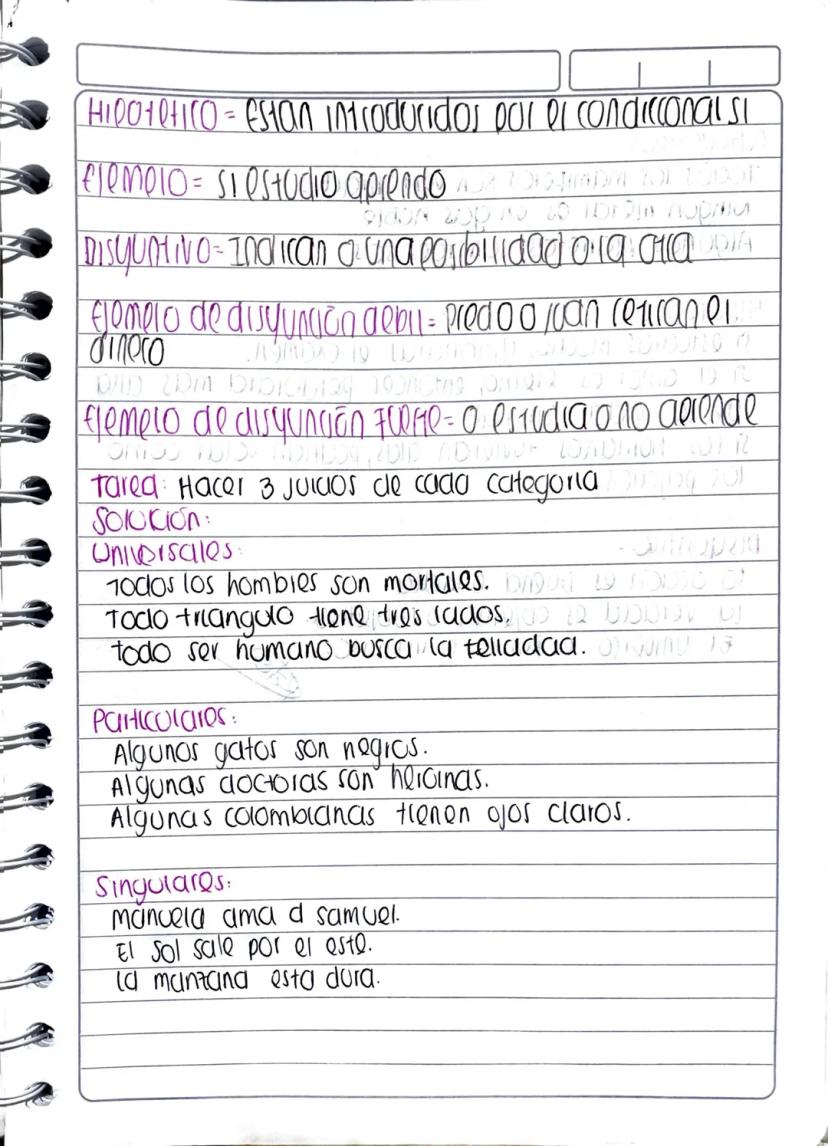 Hipotético = Estan introducidos por el condiccional si
Ejemplo = si estudio aprendo
Disyuntivo = Indican o una posibilidad o la otra
Ejemplo de disyunción debil = predo o juan retiran el
dinero
Ejemplo de disyunción Fuerte = o estudia o no aprende
Tarea: Hacer 3 juicios de cada categoria
Solución:
Universales:
Todos los hombres son mortales.
Todo triangulo tiene tres lados.
todo ser humano busca la felicidad.
Particulares:
Algunos gatos son negros.
Algunas doctoras son heroinas.
Algunas colombianas tienen ojos claros.
Singulares:
manuela ama a samuel.
El sol sale por el este.
la manzana esta dura.